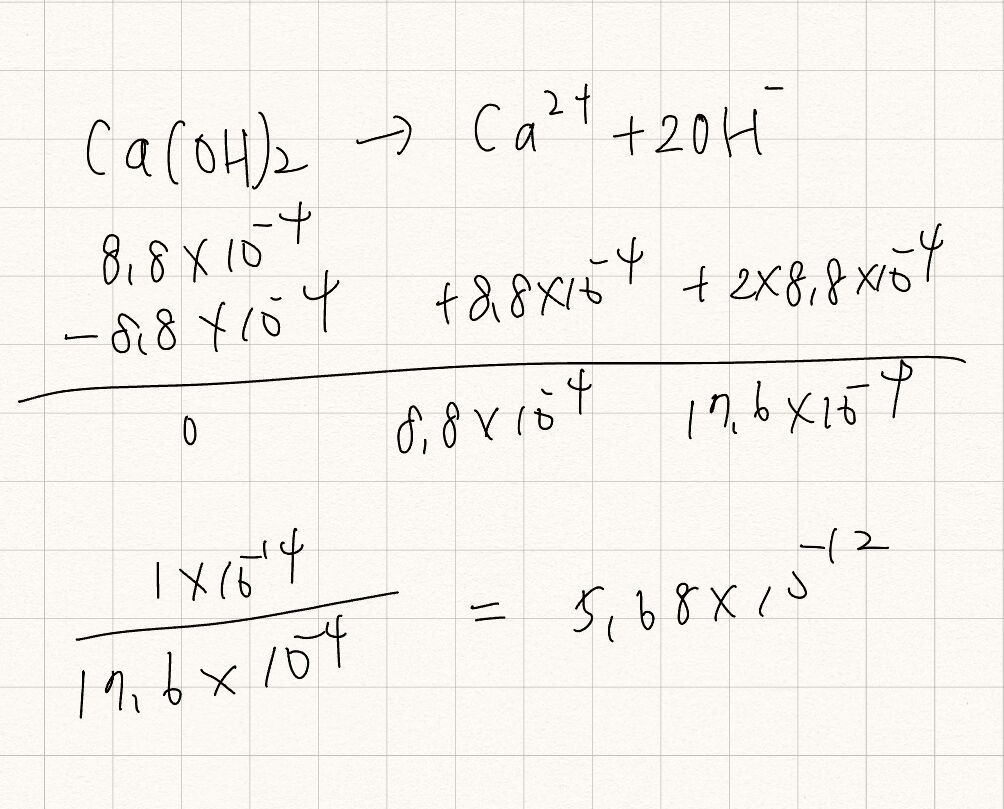 Ca(OH)2 → Ca²⁺ + 2OH⁻
8.8 × 10⁻⁴
-8.8 × 10⁻⁴ +8.8×10⁻⁴ + 2×8.8×10⁻⁴
0 8.8×10⁻⁴ 17.6×10⁻⁴
1×10⁻¹⁴
17.6×10⁻⁴ = 5.68×10⁻¹²